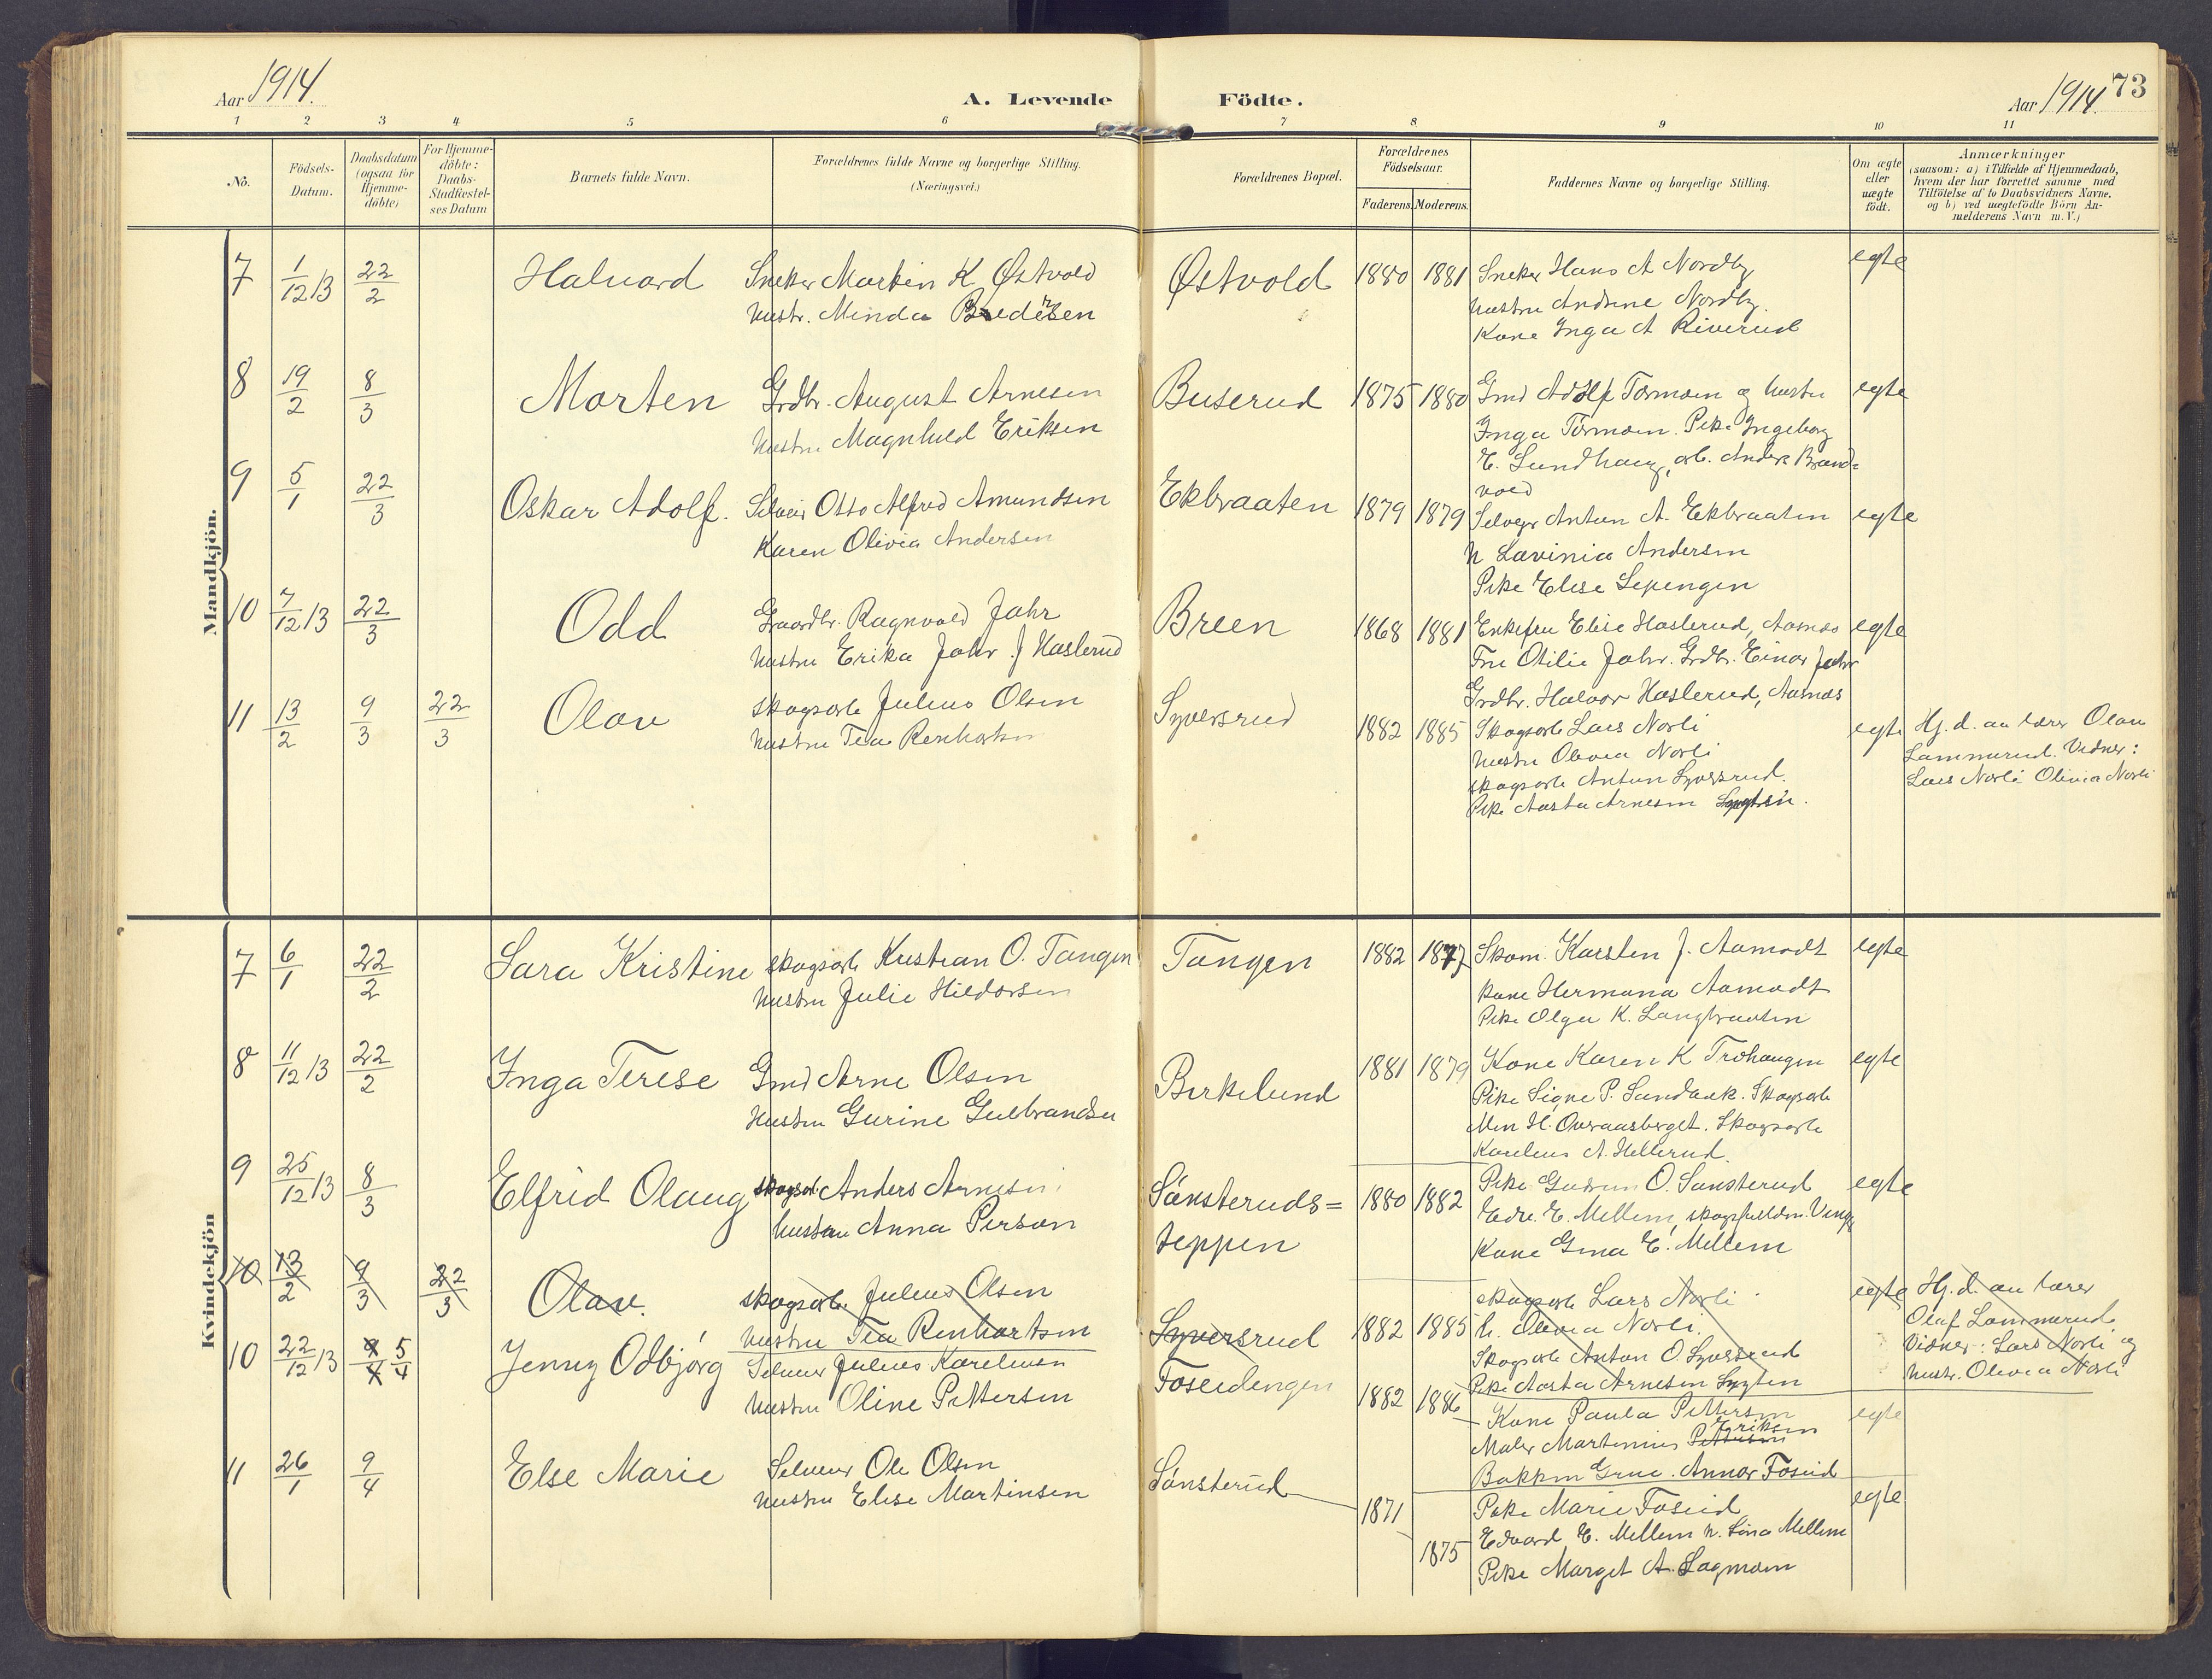 Aar 1914.
A. Levende Födte.
Aar 1914. 73
1 2 3 4 5 6 7 8 9 10 11
No.
Födsels-
Datum.
Daabsdatum
(ogsaa for
Hjemme-
döbte)
For Hjemme-
döbte:
Daabs-
Stadfæstel-
ses Datum
Barnets fulde Navn.
Forældrenes fulde Navne og borgerlige Stilling.
(Næringsvei.)
Forældrenes Bopæl.
Forældrenes
Födselsaar.
Faderens. Moderens.
Faddernes Navne og borgerlige Stilling.
Om ægte
eller
uægte
födt.
Anmærkninger
(saasom: a) i Tilfælde af Hjemmedaab,
hvem der har forrettet samme med
Tilföielse af to Daabsvidners Navne,
og b) ved uægtefödte Börn An-
melderens Navn m. V.)
Mandkjön.
7 1/12 13 22/2 Halvard Sneker Martin K Østvold Østvold 1880 1881 Sneker Hans A Nordby egte
hustr. Minda Bredesen hustru Andrine Nordby.
Kone Inga A Riverud
8 19/2 8/3 Morten Grdbr. August Arnesen Buserud 1875 1880 Gmd Adolf Tormoen og hustru egte
hustru Magnhild Eriksen Inga Tormoen. Pike Ingeborg
E. Sundhaug, arb. Anders Brand=
vold
9 5/1 22/3 Oskar Adolf. Selveier Otto Alfred Amundsen Ekbraaten 1879 1879 Selveger Anton A. Ekbraaten egte
Karen Olivia Andersen h Lavinia Andersen
Pike Elise Sepengen
10 7/12 13 22/3 Odd Gaardbr. Ragnvald Jahr Breen 1868 1881 Enkefru Elise Haslerud, Aasnes egte
hustru Erika Jahr f Haslerud Fru Otilie Jahr. Grdbr. Einar Jahr
Grdbr. Halvor Haslerud, Aasnes
11 13/2 9/3 22/3 Olav skogsarb Julius Olsen Syversrud 1882 1885 Skogsarb Lars Norli egte Hj. d. av lærer Olav
hustru Tea Renhartsen hustru Olivia Norli Lammerud. Vidner:
skogsarb Anton Syversrud. Lars Norli Olivia Norli
Pike Aasta Arnesen
Kvindekjön
7 6/1 22/2 Sara Kristine skogsarb Kristian O. Tangen Tangen 1882 1877 Skom. Karsten J. Aamodt egte
hustru Julie Hildorsen kone Hermana Aamodt
Pike Olga K. Langbraaten
8 11/12 13 22/2 Inga Terese Gmd Arne Olsen Birkelund 1881 1879 Kone Karen K Trohaugen egte
Hustru Gurine Gulbrandsen Pike Signe P. Sandbak. Skogsarb
H. Overaasberget. Skogsarb
Karelius A. Hellerud.
9 25/12 13 8/3 Elfrid Olaug skogsarb Anders Arnesen Sönsteruds= 1880 1882 Pike Gudrun O. Sönsterud egte
hustru Anna Person teppen Edv. E. Mellem, skogfuldm. Vinger
Kone Gina E. Mellem
10 13/2 9/3 22/3 Olav. skogsarb. Julius Olsen Syversrud 1882 1885 skogsarb Lars Norli egte Hj. d. av lærer
hustru Tea Renhartsen h. Olivia Norli. Olaf Lammerud
Skogsarb Anton O. Syversrud Vidner: Lars Norli og
Pike Aasta Arnesen hustr. Olivia Norli
10 22/12 13 5/4 Jenny Odbjörg Selveier Julius Karelinsen Foseidengen 1882 1886 Kone Paula Pettersen egte
hustru Oline Pettersen Maler Martinius Pettersen Eriksen
Bakken Grue. Annar Foseid
11 26/1 9/4 Else Marie Selveier Ole Olsen Sönsterud 1871 1875 Pike Marie Foseid egte
hustru Elise Martinsen Edvard E. Mellem h. Gina Mellem
Pike Margit A. Lagmoen